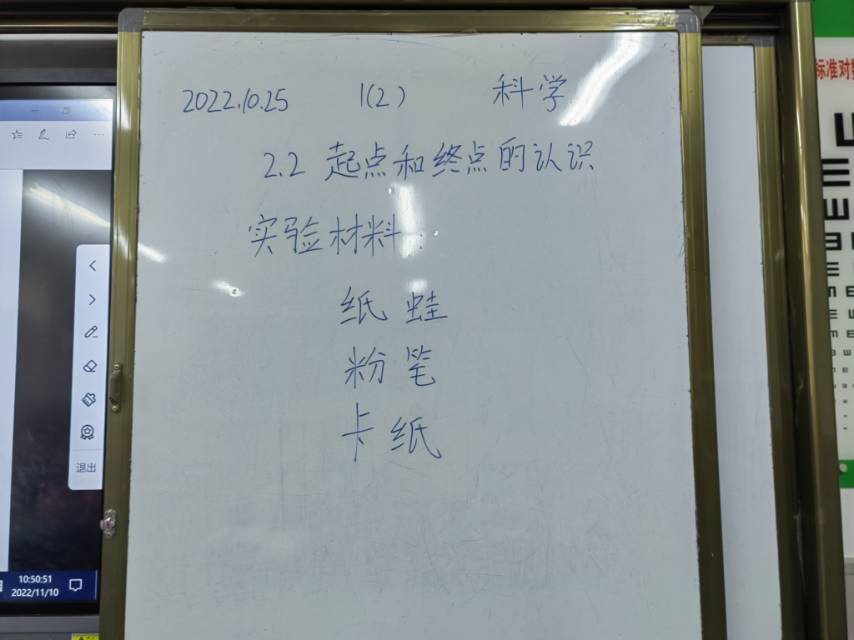 2022.10.25 1(2) 科学
2.2 起点和终点的认识
实验材料:
纸蛙
粉笔
卡纸
退出
10:50:51
2022/11/10
标准对数